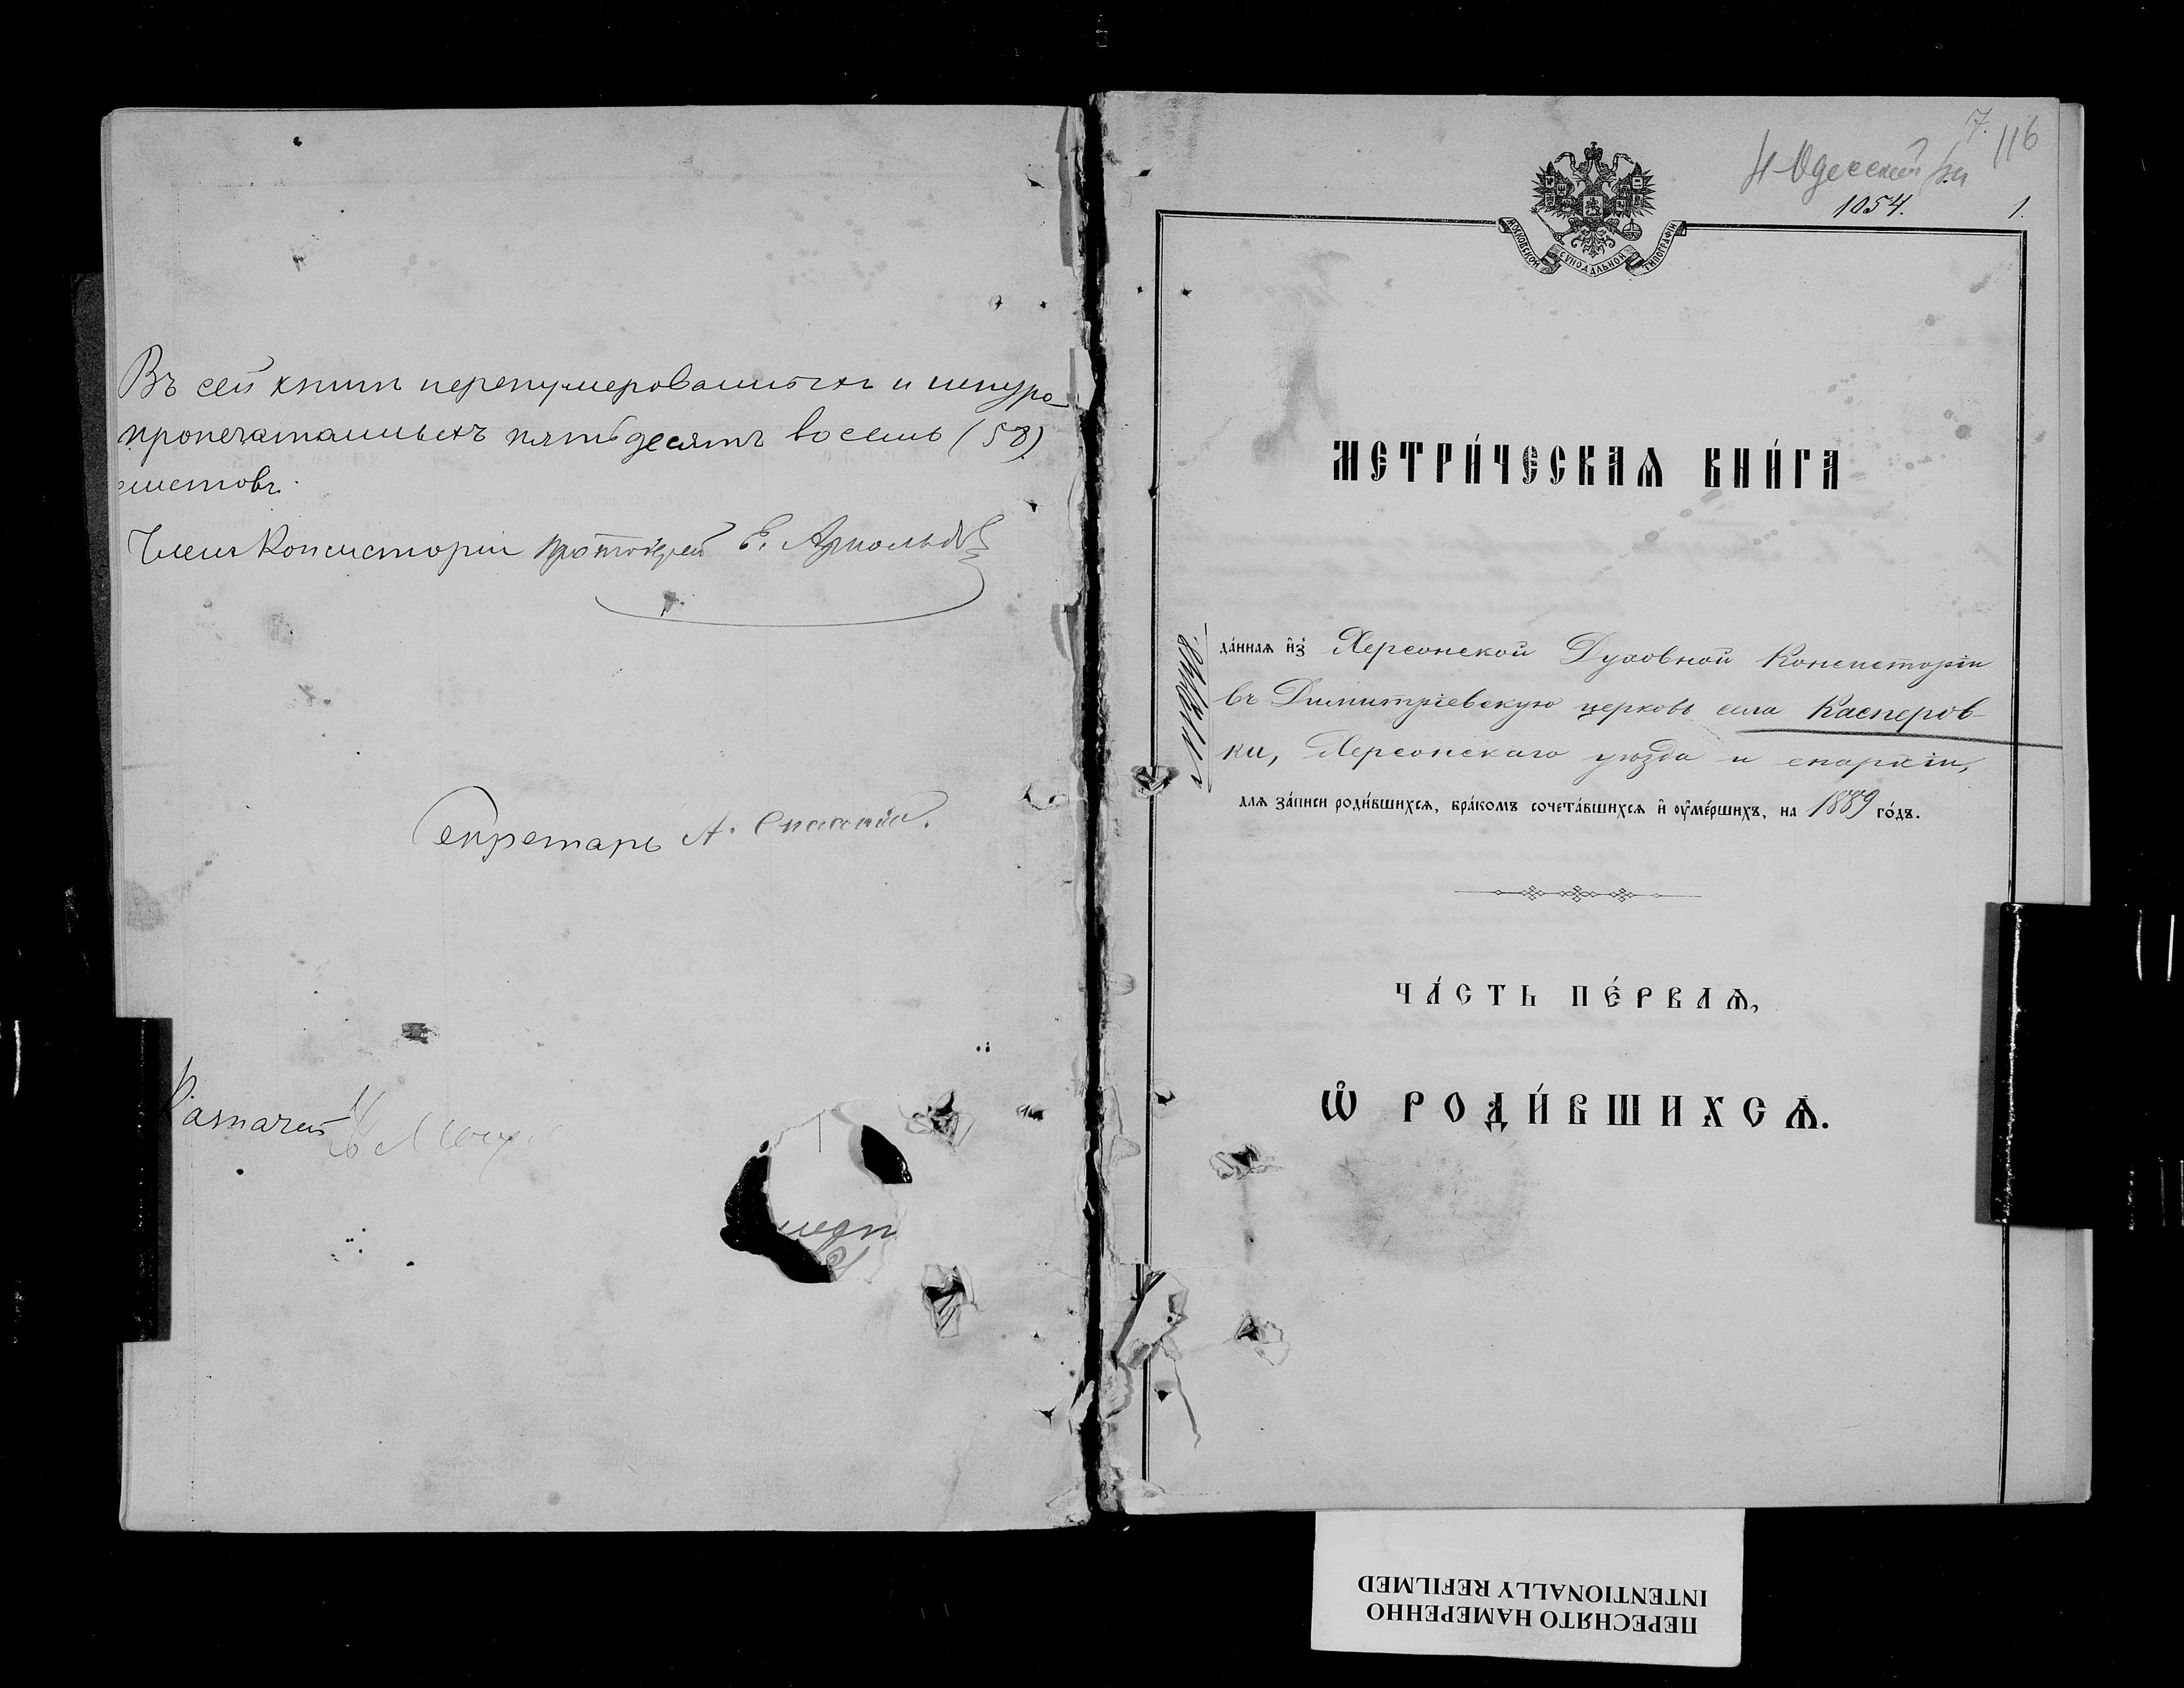 Въ сей книгѣ перенумерованныхъ и шнуро-
пропечатанныхъ пятьдесятъ восемь (58)
листовъ.
Членъ Консисторіи Протоіерей Е. Арнольдовъ
Секретарь А.
Казначей
7.
116
Н-Одесский р-н
1054.
1.
МОСКОВСКОЙ СѴНОДАЛЬНОЙ ТИПОГРАФІИ
МЕТРИ́ЧЕСКАѦ КНИ́ГА
да́ннаѧ и҆з̾ Херсонской Духовной Консисторіи
въ Димитріевскую церковь села Касперов-
ки, Херсонскаго уѣзда и епархіи,
длѧ за́писи роди́вшихсѧ, бра́комъ сочета́вшихсѧ и҆ ᲂу҆ме́ршихъ, на 1889 го́дъ.
ЧА́СТЬ ПЕ́РВАѦ,
Ѡ҆ РОДИ́ВШИХСѦ.
ПЕРЕСНЯТО НАМЕРЕННО
INTENTIONALLY REFILMED